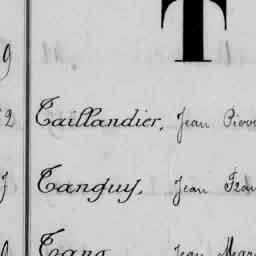 T
9
2 Taillandier, Jean Pierr
Tanguy, Jean Fran
Tang Jean Mar